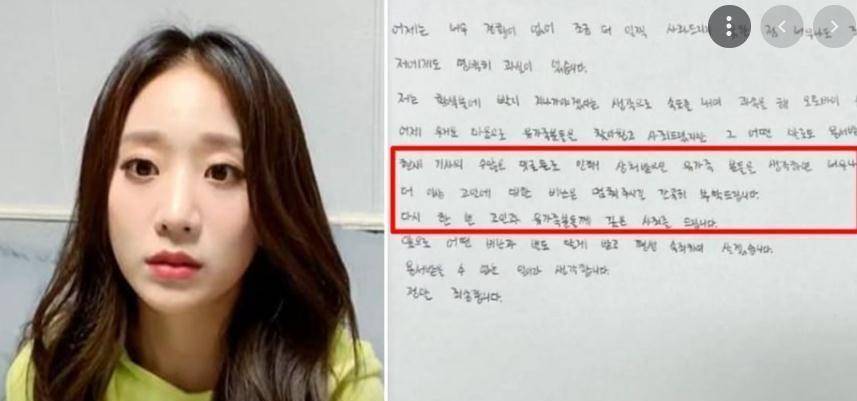 어제는 너무 경황이 없어 조금 더 일찍 사과드리지
저에게도 명백히 과실이 있습니다.
저는 황색불에 빨리 지나가야겠다는 생각으로 속도를 내며 과속을 해 오토바이
어제 무거운 마음으로 유가족분들을 찾아뵙고 사죄드렸지만 그 어떤 말로도
현재 기사의 수많은 댓글들로 인해 상처받으실 유가족 분들을 생각하면 너무나
더 이상 고인에 대한 비난은 멈춰주시길 간곡히 부탁드립니다.
다시 한 번 고인과 유가족분들께 깊은 사죄를 드립니다.
앞으로 어떤 비난과 벌도 달게 받고 평생 속죄하며 살겠습니다.
용서받을 수 없는 일이라 생각합니다.
정말 죄송합니다.